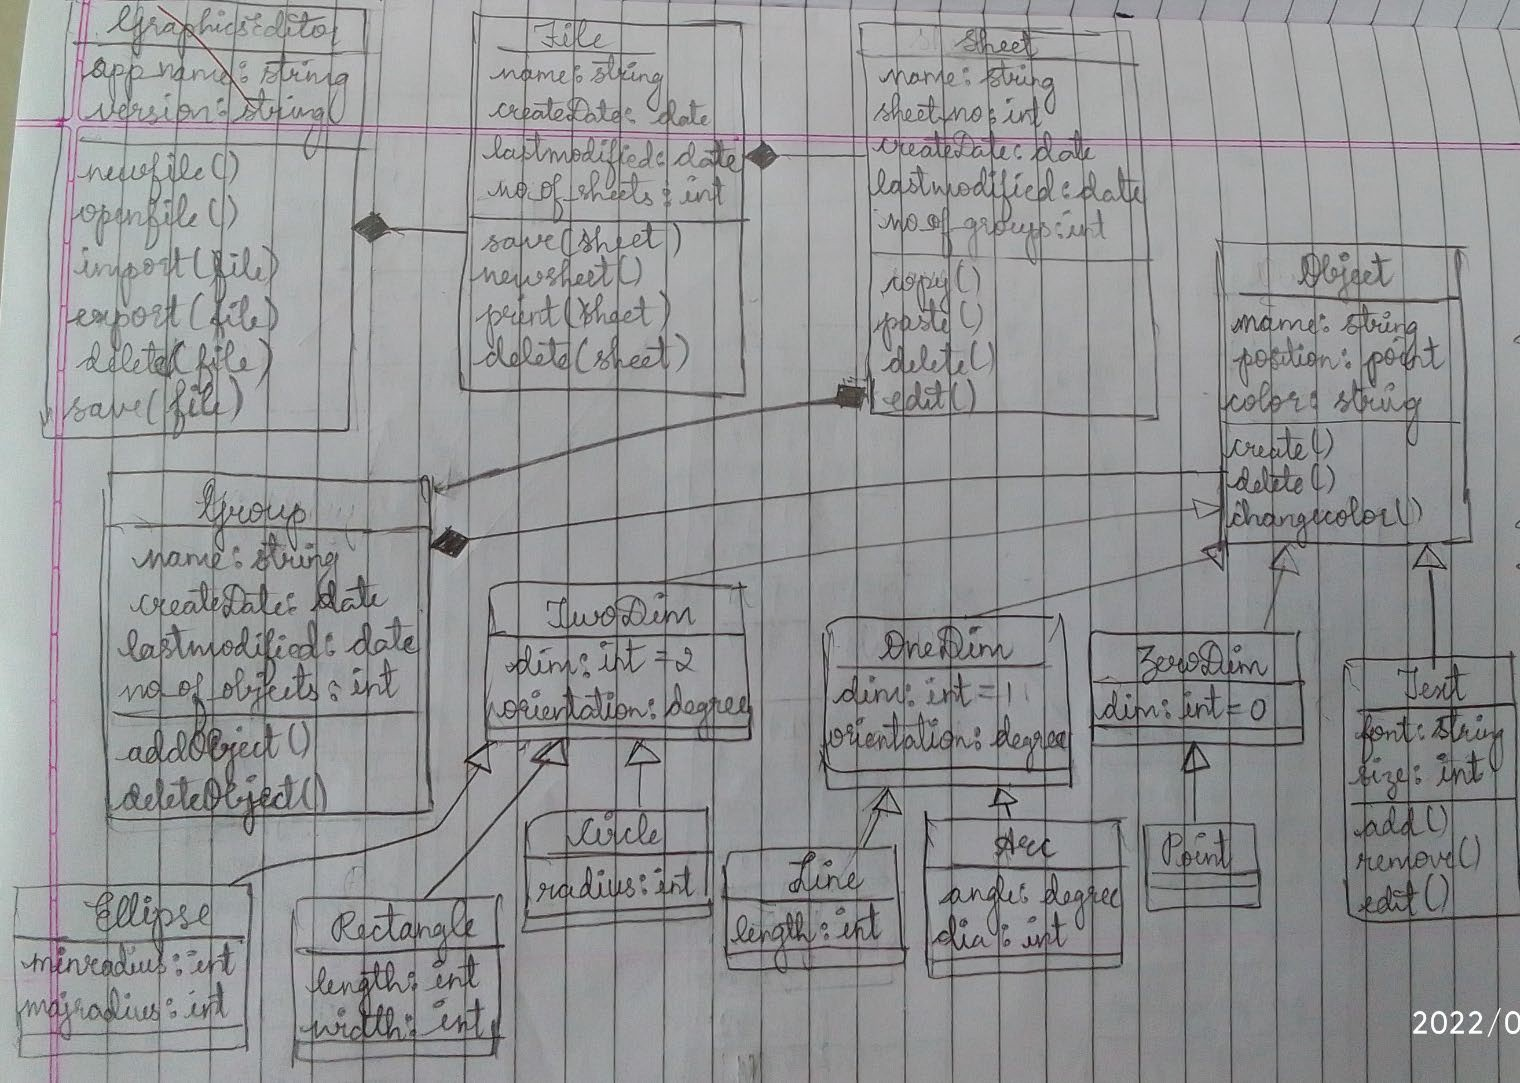 GraphicsEditor
app name: string
version: string
newfile()
openfile()
import(file)
export(file)
delete(file)
save(file)
File
name: string
createDate: date
lastmodified: date
no_of_sheets: int
save(sheet)
newsheet()
print(sheet)
delete(sheet)
Sheet
name: string
sheet_no: int
createDate: date
lastmodified: date
no_of_groups: int
copy()
paste()
delete()
edit()
Object
name: string
position: point
color: string
create()
delete()
changecolor()
Group
name: string
createDate: date
lastmodified: date
no_of_objects: int
addObject()
deleteObject()
TwoDim
dim: int = 2
orientation: degree
OneDim
dim: int = 1
orientation: degree
ZeroDim
dim: int = 0
Text
font: string
size: int
add()
remove()
edit()
Ellipse
minradius: int
majradius: int
Rectangle
length: int
width: int
Circle
radius: int
Line
length: int
Arc
angle: degree
dia: int
Point
2022/0